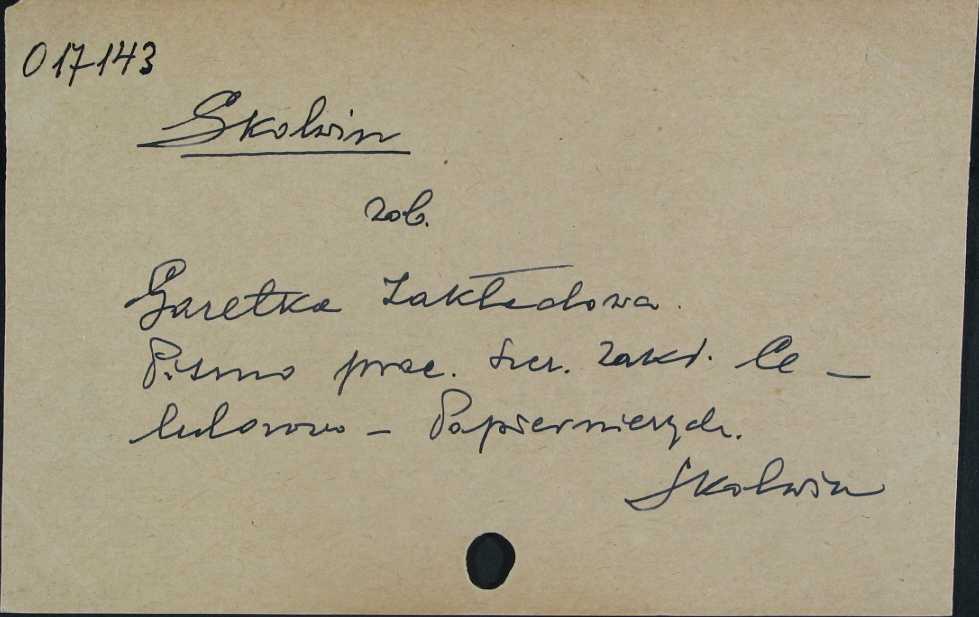 017143
Skolwin
zob.
Gazetka Zakładowa.
Pismo prac. Szcz. Zakł. Ce-
lulozowo - Papierniczych.
Skolwin